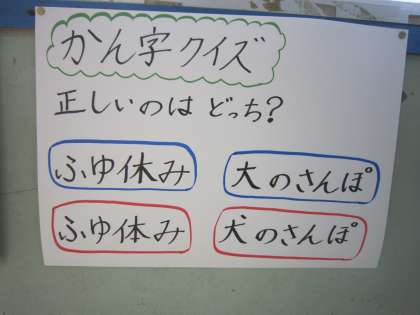 かん字クイズ
正しいのは どっち?
ふゆ休み 大のさんぽ
ふゆ体み 犬のさんぽ